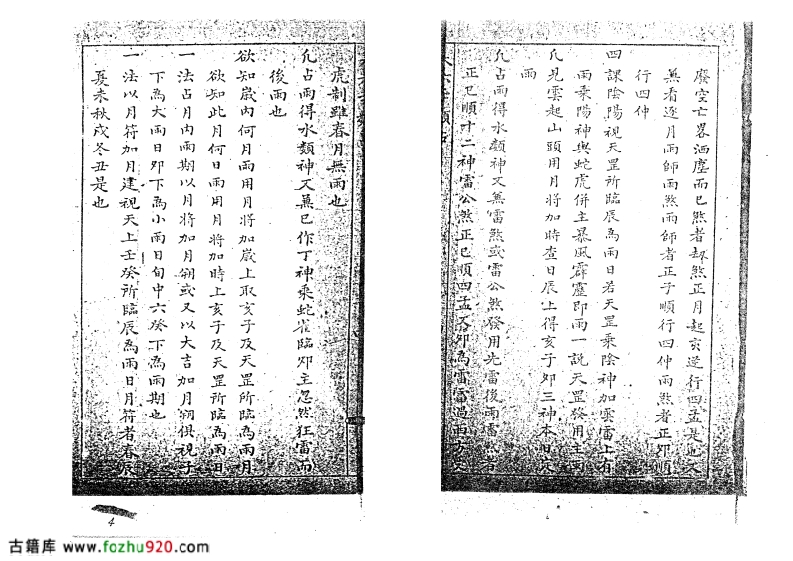 廢空亡畧洒塵而已煞者劫煞正月起亥逆行四孟是也又
無看逐月雨師雨煞雨師者正子順行四仲雨煞者正卯順
行四仲
四課陰陽視天罡所臨辰為雨日若天罡乘陰神加雲雷上有
雨乘陽神與蛇虎併主暴風霹靂即雨一說天罡發用主雨
凡見雲起山頭用月將加時查日辰上得亥子卯三神本日
雨
凡占雨得水類神又無雷煞或雷公煞發用先雷後雨雷煞
正巳順十二神雷公煞正巳順四孟又卯為雷雷過酉方
虎制雖春月無雨也
凡占雨得水類神又無巳作丁神乘蛇雀臨卯主忽然狂雷而
後雨也
欲知歲內何月雨用月將加歲上取亥子及天罡所臨為雨月
欲知此月何日雨用月將加時上亥子及天罡所臨為雨日
一法占月內雨期以月將加月朔或又以大吉加月朔俱視子
下為大雨日卯下為小雨日旬中六癸下為雨期也
一法以月符加月建視天上壬癸所臨辰為雨日月符者春辰
夏未秋戌冬丑是也
4
古籍库 www.fozhu920.com